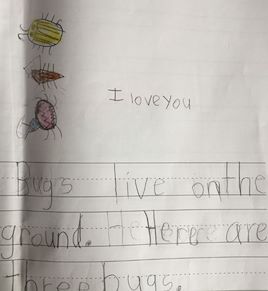 I love you
Bugs live on the
ground. He Here are
Three bugs.